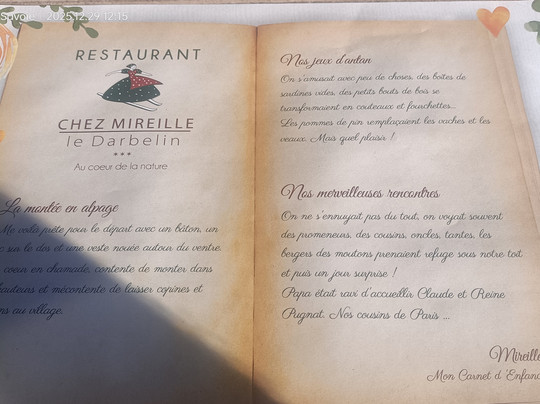 Savoie 2025.12.29 12:15
RESTAURANT
CHEZ MIREILLE
le Darbelin
***
Au coeur de la nature
La montée en alpage
Me voilà prête pour le départ avec un bâton, un
c sur le dos et une veste nouée autour du ventre.
coeur en chamade, contente de monter dans
hauteurs et mécontente de laisser copines et
ns au village.
Nos jeux d'antan
On s'amusait avec peu de choses, des boîtes de
sardines vides, des petits bouts de bois se
transformaient en couteaux et fourchettes...
Les pommes de pin remplaçaient les vaches et les
veaux. Mais quel plaisir !
Nos merveilleuses rencontres
On ne s'ennuyait pas du tout, on voyait souvent
des promeneurs, des cousins, oncles, tantes, les
bergers des moutons prenaient refuge sous notre toit
et puis un jour surprise !
Papa était ravi d'accueillir Claude et Reine
Pugnat. Nos cousins de Paris ...
Mireille
Mon Carnet d'Enfanc